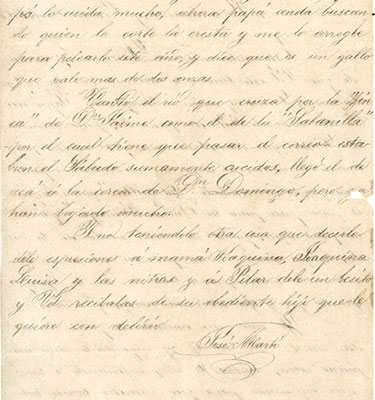 pá lo cuida mucho, ahora papá anda buscan
do quien le corte la cresta y me lo arregle
para pelearlo este año, y dice que es un gallo
que vale mas de dos onzas.
Tanto el rio que cruza por la "Finca" de Dn Jaime como el de la "Sabanilla"
por el cual tiene que pasar el correo esta
ban el Sábado sumamente crecidos, llegó el de
acá á la cerca de Dn Domingo, pero ya
han bajado mucho.
Y no teniendo otra cosa que decirle
déle espresiones á mamá Joaquina, Joaquina
Luisa y las niñas y á Pilar déle un besito
y Vd. recíbalas de su obediente hijo que le
quiere con delirio
José Martí